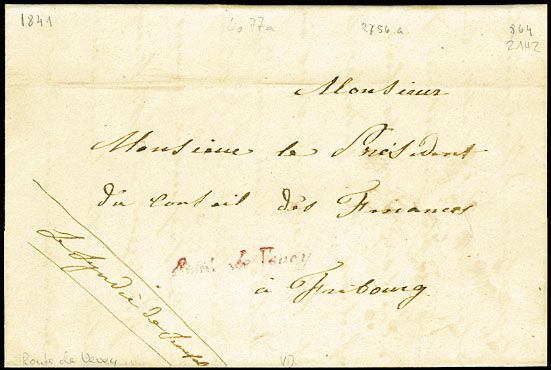 1841
77a
2756.a
864
2142
Monsieur
Monsieur le Président
du conseil des Finances
Route de Vevey
à Fribourg.
Le Syndic de
Route de Vevey
VD